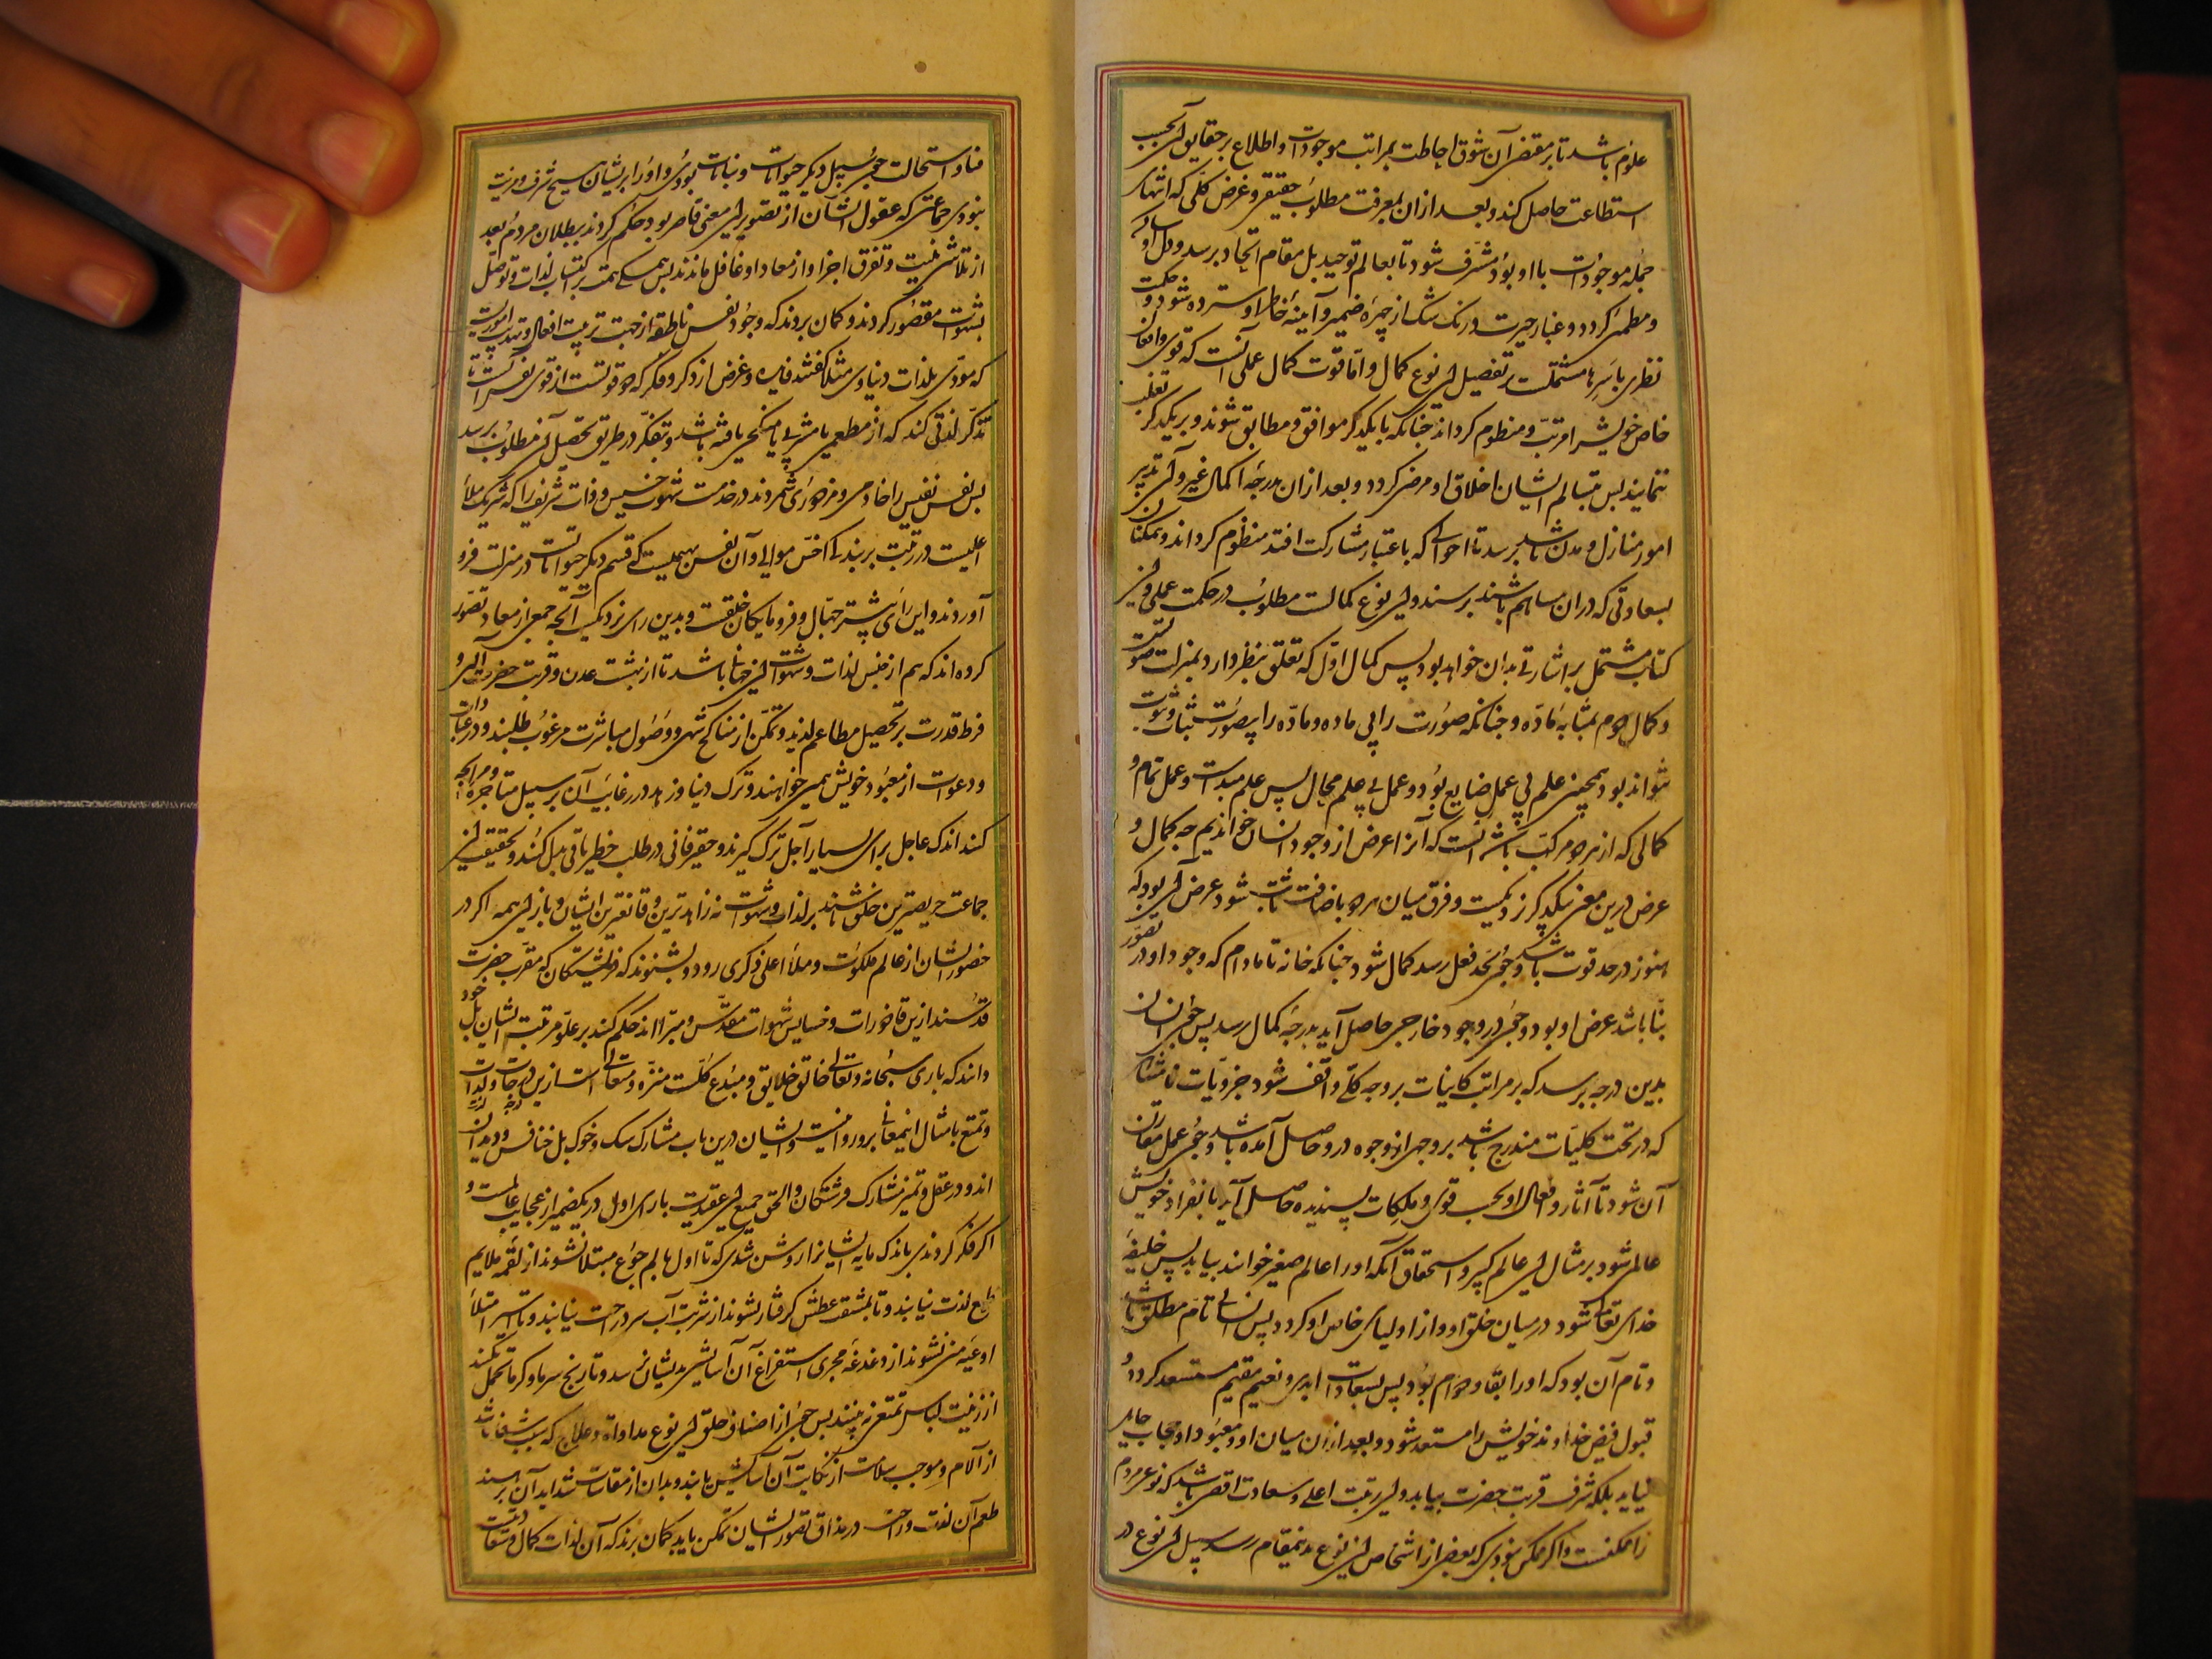 علوم باشد تا بر مقتضی آن شوق احاطت بمراتب موجودات و اطلاع بر حقایق آن بحسب
استطاعت حاصل کند و بعد از ان بمعرفت مطلوب حقیقی و غرض کلی که انتهای
جمله موجودات با او بود مشرف شود تا بعالم توحید بل مقام اتحاد برسد و دل او ساکن
و مطمئن گردد و غبار حیرت و زنک شک از چهره ضمیر و آینه خاطر او سترده شود و حکمت
نظری باسرها مشتملست بر تفصیل این نوع کمال و اما قوت کمال عملی آنست که قوی و افعال
خاص خویش را مرتب و منظوم کرداند چنانکه با یکدکر موافق و مطابق شوند و بر یکدکر تغلب
ننمایند بس بتسالم ایشان اخلاق او مرضی کردد و بعد از ان بدرجه اکمال غیر و آن تدبیر
امور منازل و مدن باشد برسد تا احوالی که باعتبار مشارکت افتد منظوم کرداند و همکنان
بسعادتی که دران مساهم باشند برسند و این نوع کمالست مطلوب در حکمت عملی و این
کتاب مشتمل بر اشارتی بدان خواهد بود پس کمال اول که تعلق بنظر دارد بمنزلت صورتست
و کمال دوم بمثابه ماده و چنانکه صورت را بی ماده و ماده را بی صورت ثبات و ثبوت
نتواند بود همچنین علم بی عمل ضایع بود و عمل بی علم محال پس علم مبداست و عمل تمام و
کمالی که از هر دو مرکب باشد انست که آنرا غرض از وجود انسان خواندیم چه کمال و
غرض درین معنی بیکدیکر نزدیکست و فرق میان هر دو باضافت ثابت شود غرض آن بود که
هنوز در حد قوت باشد و چون بحد فعل رسد کمال شود چنانکه خانه تا مادام که وجود او در تصور
بنا باشد غرض او بود و چون در وجود خارجی حاصل آید بدرجه کمال رسد پس چون انسان
بدین درجه برسد که بر مراتب کاینات بر وجه کلی واقف شود جزویات نامتناهی
که در تحت کلیات مندرج باشد بر وجهی از وجوه درو حاصل آمده باشد و چون عمل مقارن
آن شود تا آثار و افعال او بحسب قوی و ملکات پسندیده حاصل آید بانفراد خویش
عالمی شود بر مثال این عالم کبیر و استحقاق آنکه اورا عالم صغیر خوانند بیابد پس خلیفه
خدای تعالی شود در میان خلق او و از اولیای خاص او کردد پس انسانی تام مطلق باشد
و تام آن بود که اورا بقا و دوام بود پس بسعادت ابدی و نعیم مقیم مستسعد کردد و
قبول فیض خداوند خویش را مستعد شود و بعد ازان میان او و معبود او حجابی حایل
نیاید بلکه شرف قربت حضرت بیابد و این رتبت اعلی و سعادت اقصی باشد که نوع مردم
را ممکنست و اکر ممکن نبودی که بعضی از اشخاص این نوع بدینمقام رسد سبیل این نوع در
فنا و استحالت چون سبیل دیکر حیوانات و نباتات بودی و اورا بر ایشان هیچ شرف و مزیت
نبودی جماعتی که عقول ایشان از تصور این معنی قاصر بود حکم کردند ببطلان مردم بعد
از تلاشی بنیت و تفرق اجزا و از معاد او غافل ماندند بس همکی همت بر اکتساب لذات و توصل
بشهوات مقصور کردند و کمان بردند که وجود نفس ناطقه از جهت ترتیب افعال و تهذیب امورست
که مودی بلذات دنیاوی مثلا کفتند فایده و غرض از ذکر و فکر که دو قوتست از قوی نفس آنست تا
تذکر لذتی کند که از مطعمی یا مشربی یا منکحی یافته باشد و بتفکر در طریق تحصیل آن مطلوب برسد
بس نفس نفیس را خادمی و مزدوری شمردند در خدمت شهوت خسیس و ذات شریف را که شریک ملأ
اعلیست در رتبت بربندکی اخس موالی و آن نفس بهیمیست که قسم دیکر حیواناتست در منزلت فرو
آوردند و این رای بیشتر جهال و فرومایکان خلقست و بدین رای نزدیکست آنچه جمعی از معاد تصور
کرده اند که هم از جنس لذات و شهوات این جهانی باشد تا از بهشت عدن و قربت حضرت الهی و
فرط قدرت بر تحصیل مطاعم لذیذ و تمکن از مناکح شهی و وصول مباشرت مرغوب طلبند و در عبادات
و دعوات از معبود خویش همین خواهند و ترک دنیا و زهد در رغایب آن بر سبیل متاجره و مرابحه
کنند اندک عاجل برای بسیار آجل ترک کیرند و حقیر فانی در طلب خطیر باقی بذل کنند و بحقیقت این
جماعت حریصترین خلق باشند بر لذات و شهوات نه زاهدترین و قانعترین ایشان و با این همه اکر در
حضور ایشان از عالم ملکوت و ملأ اعلی ذکری رود و بشنوند که فرشتکان که مقرب حضرت
قدسند ازین قاذورات و خسایس شهوات مقدس و مبرا اند حکم کنند بر علو مرتبت ایشان بل خود
دانند که باری سبحانه و تعالی خالق خلایق و مبدع کلست منزه و متعالی است ازین درجات و لذات
و تمتع بامثال اینمعانی برو روا نیست و ایشان درین باب مشارک سک و خوک بل خنافس و دیدان
اند و در عقل و تمیز مشارک فرشتکان و الحق جمع این عقیدت با رای اول در یکضمیر از عجایب عالمست و
اکر فکر کردندی باندک مایه ایشانرا روشن شدی که تا اول بالم جوع مبتلا نشوند از لقمه ملایم
طبع لذت نیابند و تا بمشقت عطش کرفتار نشوند از شربت آب سرد راحت نیابند و تا اسیر امتلأ
اوعیه منی نشوند از دغدغه مجری استفراغ آن آسایش بدیشان نرسد و تا رنج سرما و کرما تحمل نکنند
از زینت لباس تمتعی نه بینند بس چون از اصناف خلق این نوع مداواة و علاج که سبب شفا باشد
از آلام و موجب سلامت از نکایت آن آسایش یابند و بدان از مقاسات شداید آن برهند
طعم آن لذت و راحت در مذاق تصور ایشان تمکن یابد کمان برند که آن لذات کمال و سعادتست